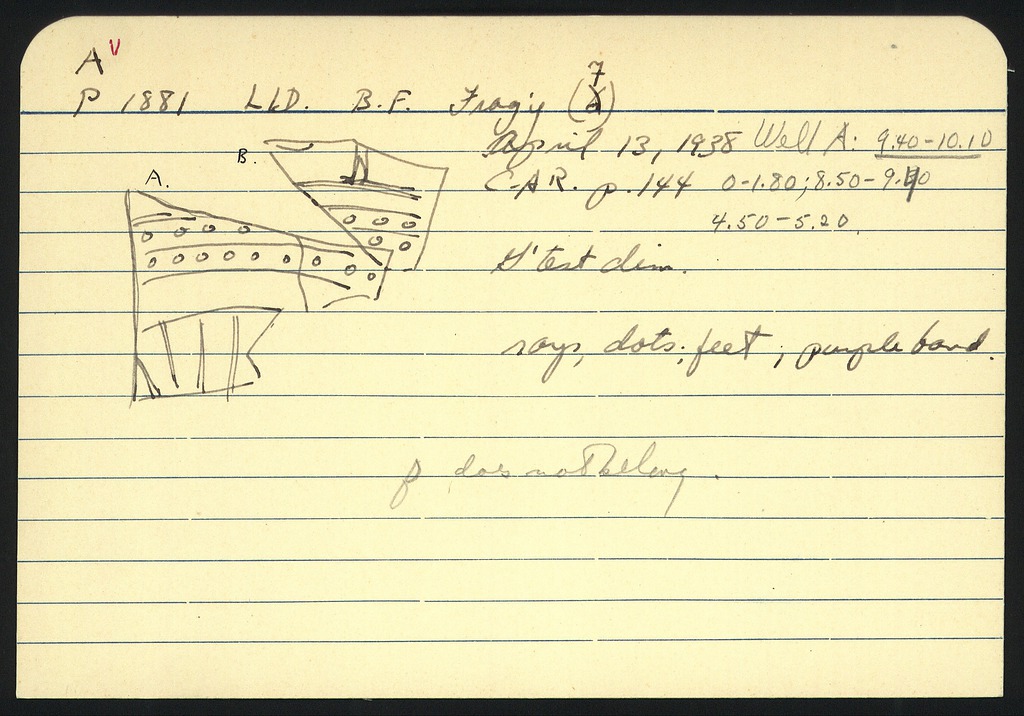 A V
P 1881 LLD. B.F. Frag's (7)
April 13, 1938 Well A: 9.40-10.10
B.
C-AR. p. 144 0-1.80; 8.50-9.40
A.
4.50-5.20.
G'test dim.
rays, dots; feet; purple band.
β does not belong.